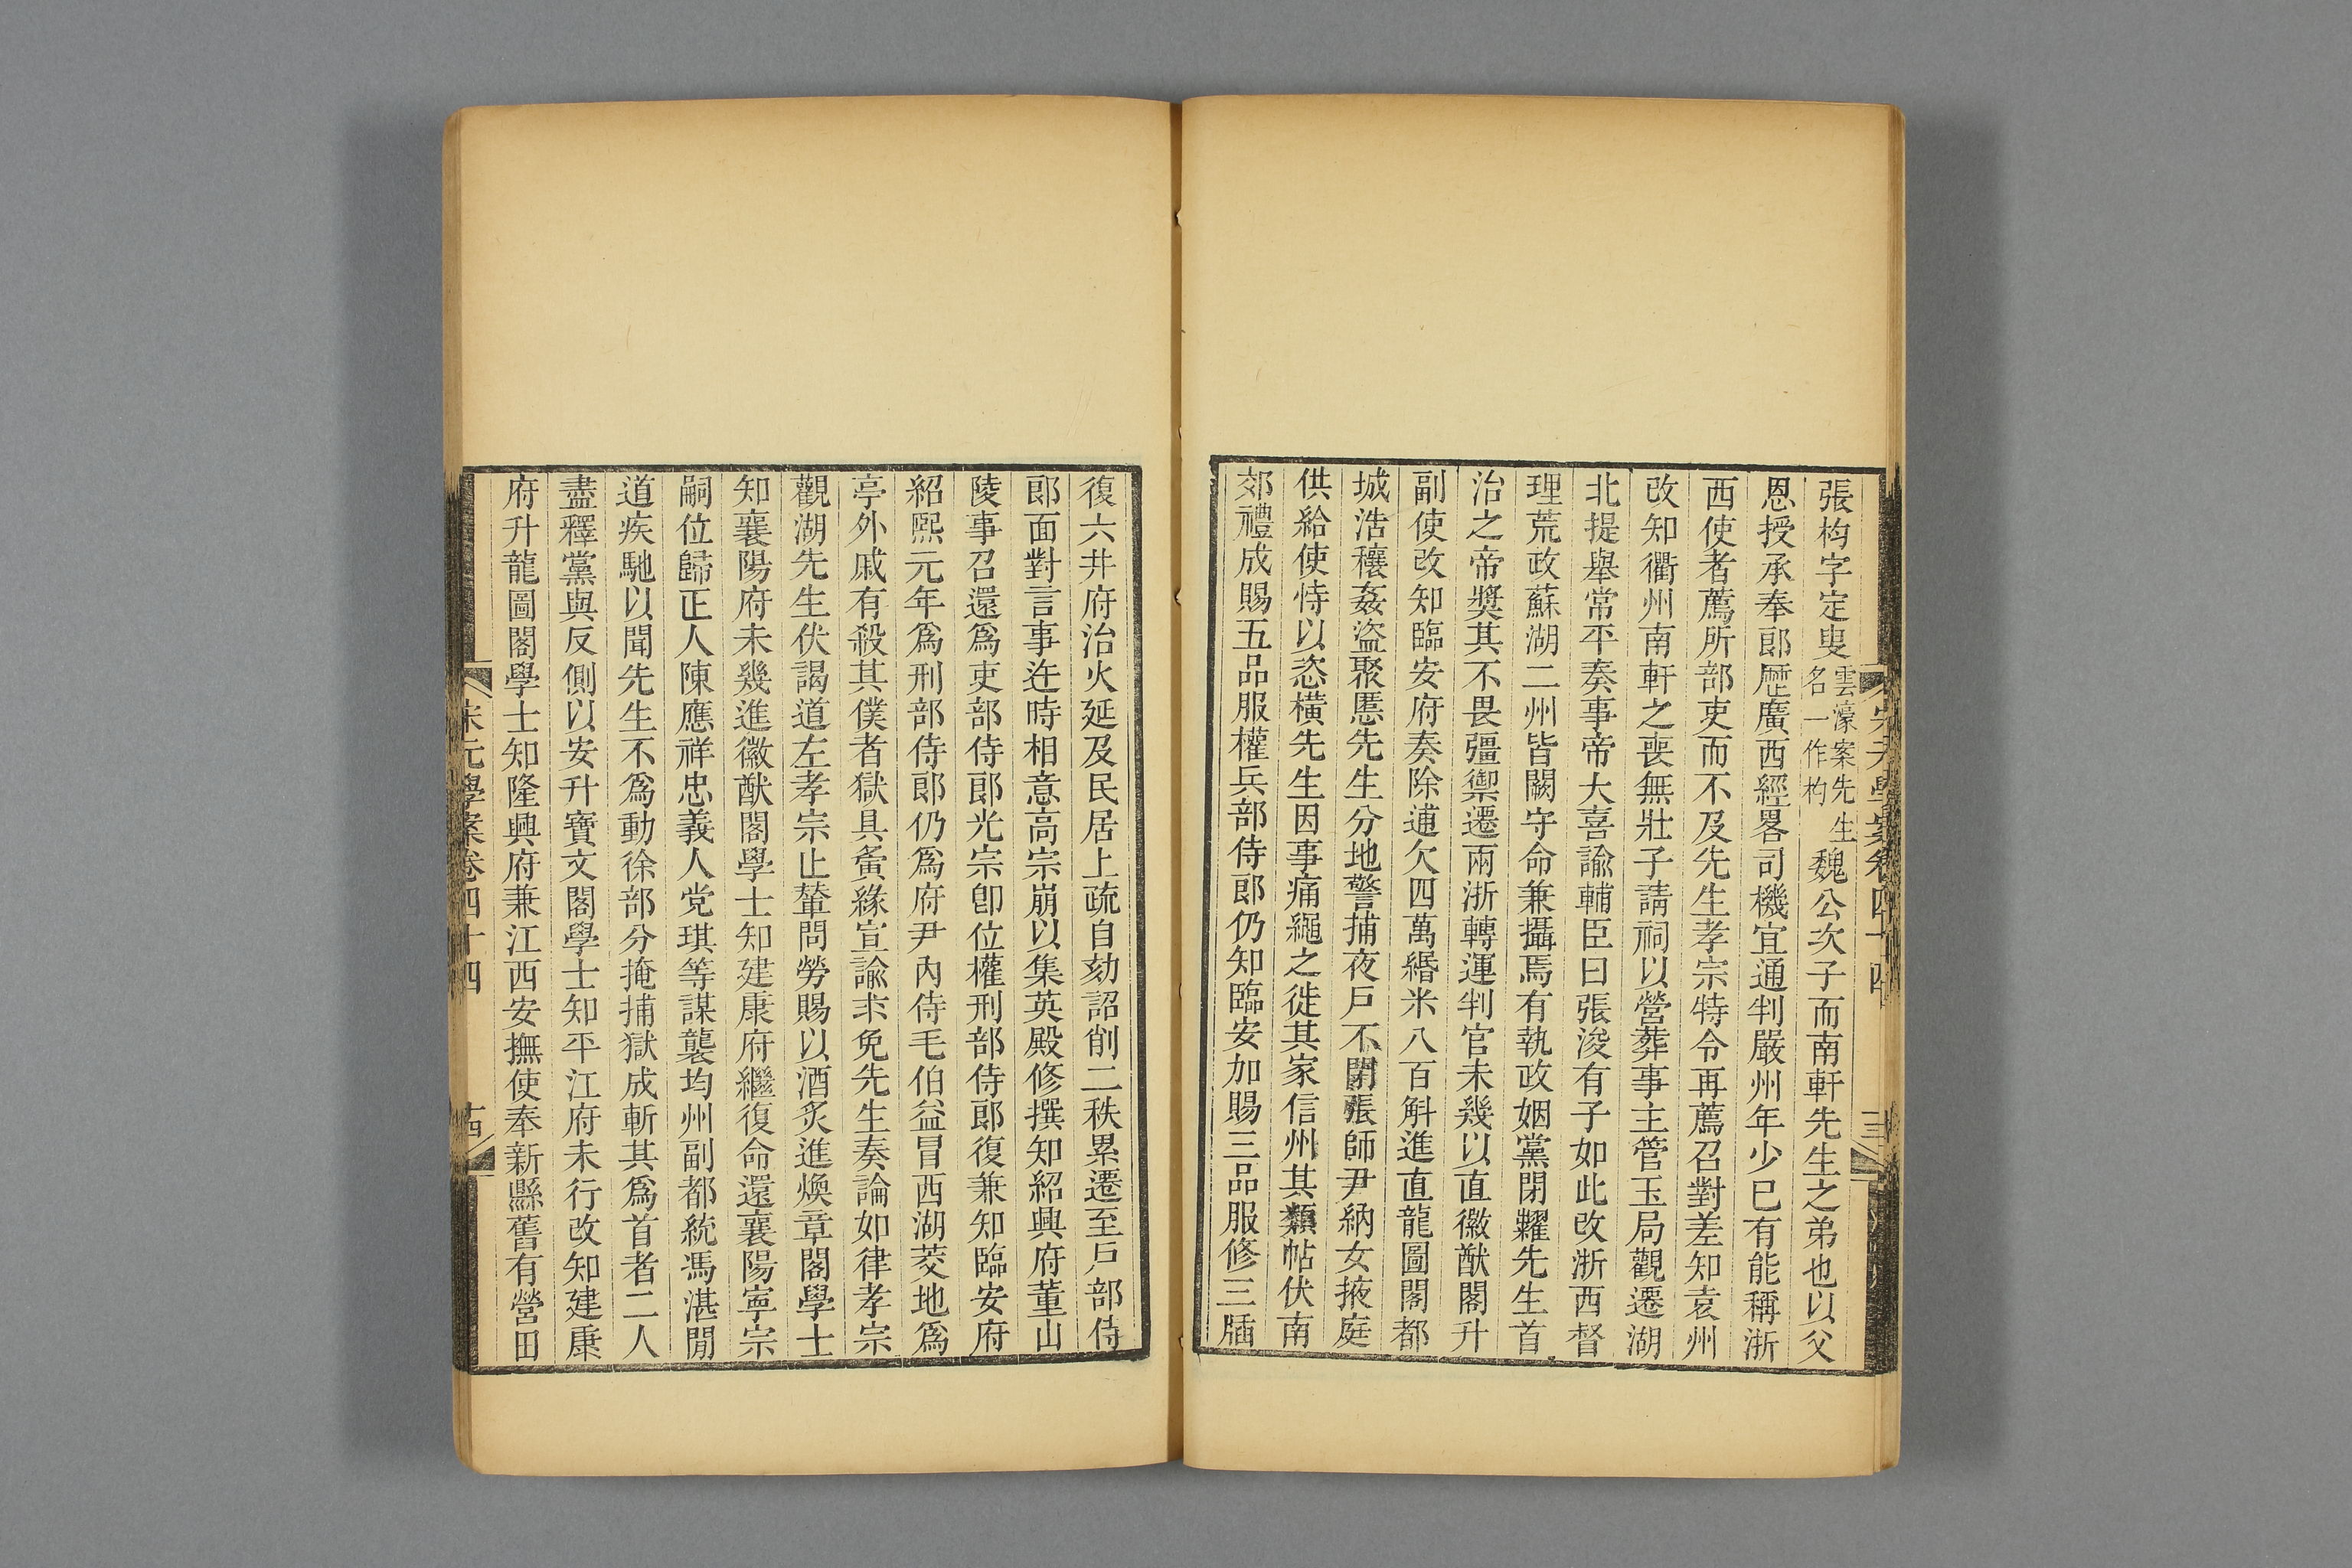 張构字定叟雲濠案先生名一作杓魏公次子而南軒先生之弟也以父
恩授承奉郎歷廣西經畧司機宜通判嚴州年少已有能稱浙
西使者薦所部吏而不及先生孝宗特令再薦召對差知袁州
改知衢州南軒之喪無壯子請祠以營葬事主管玉局觀遷湖
北提舉常平奏事帝大喜諭輔臣曰張浚有子如此改浙西督
理荒政蘇湖二州皆闕守命兼攝焉有執政姻黨閉糶先生首
治之帝獎其不畏彊禦遷兩浙轉運判官未幾以直徽猷閣升
副使改知臨安府奏除逋欠四萬緡米八百斛進直龍圖閣都
城浩穰姦盜聚慝先生分地警捕夜戶不閉張師尹納女掖庭
供給使恃以恣橫先生因事痛繩之徙其家信州其類帖伏南
郊禮成賜五品服權兵部侍郎仍知臨安加賜三品服修三牐
復六井府治火延及民居上疏自劾詔削二秩累遷至戶部侍
郎面對言事迕時相意高宗崩以集英殿修撰知紹興府董山
陵事召還爲吏部侍郎光宗卽位權刑部侍郎復兼知臨安府
紹熙元年爲刑部侍郎仍爲府尹內侍毛伯益冒西湖菱地爲
亭外戚有殺其僕者獄具夤緣宣諭求免先生奏論如律孝宗
觀湖先生伏謁道左孝宗止輦問勞賜以酒炙進煥章閣學士
知襄陽府未幾進徽猷閣學士知建康府繼復命還襄陽寧宗
嗣位歸正人陳應祥忠義人党琪等謀襲均州副都統馮湛閒
道疾馳以聞先生不爲動徐部分掩捕獄成斬其爲首者二人
盡釋黨與反側以安升寶文閣學士知平江府未行改知建康
府升龍圖閣學士知隆興府兼江西安撫使奉新縣舊有營田
宋元學案卷四十四